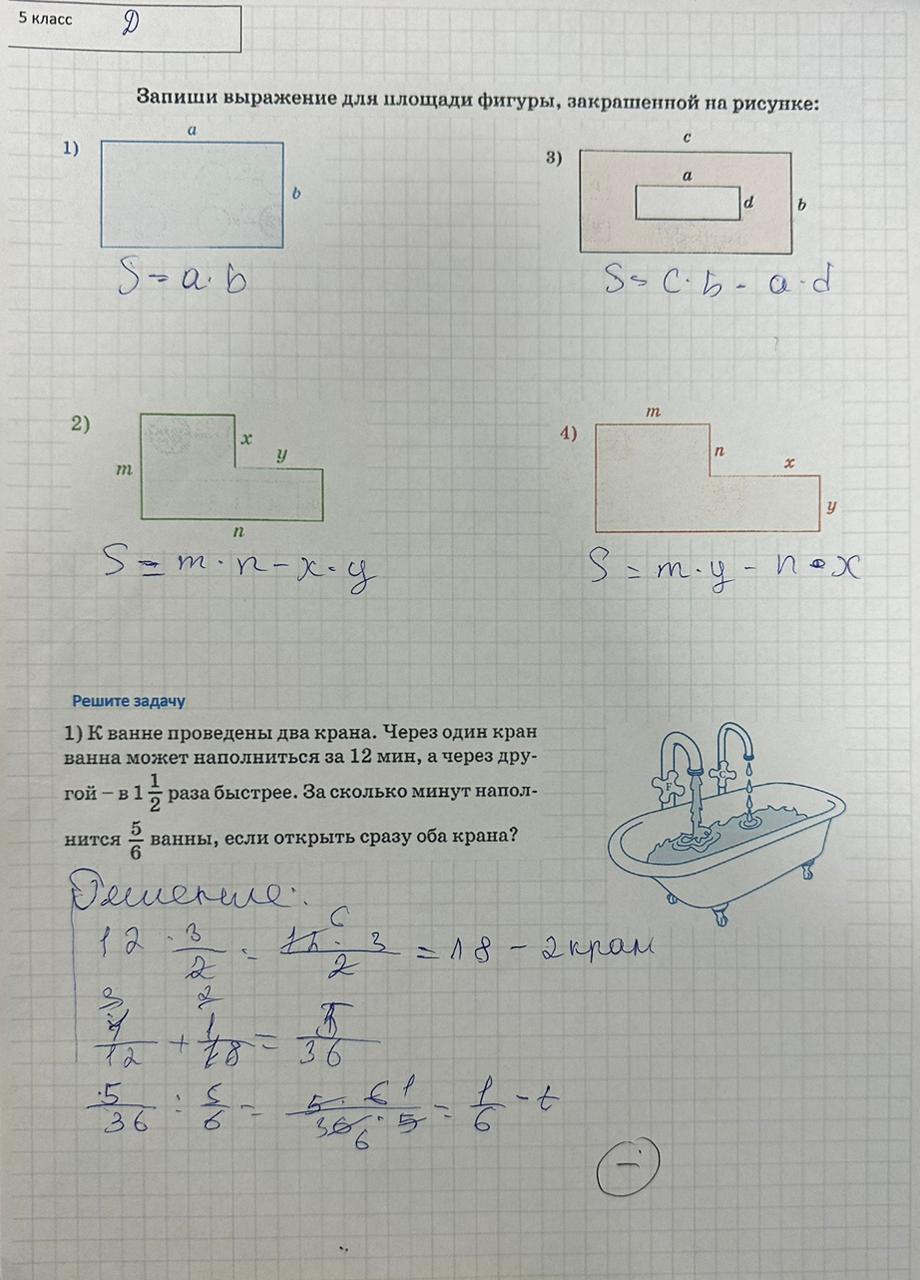 5 класс Д
Запиши выражение для площади фигуры, закрашенной на рисунке:
1)
a
b
S = a · b
3)
c
a
d
b
S = c · b - a · d
2)
x
y
m
n
S = m · n - x · y
4)
m
n
x
y
S = m · y - n · x
Решите задачу
1) К ванне проведены два крана. Через один кран
ванна может наполниться за 12 мин, а через дру-
гой – в 1 1/2 раза быстрее. За сколько минут напол-
нится 5/6 ванны, если открыть сразу оба крана?
F C
Решение:
12 · 3/2 = 12 · 3/2 = 18 - 2 кран
6
3 2
1/12 + 1/18 = 5/36
5/36 : 5/6 = 5 · 6/36 · 5 = 1/6 - t
1
6